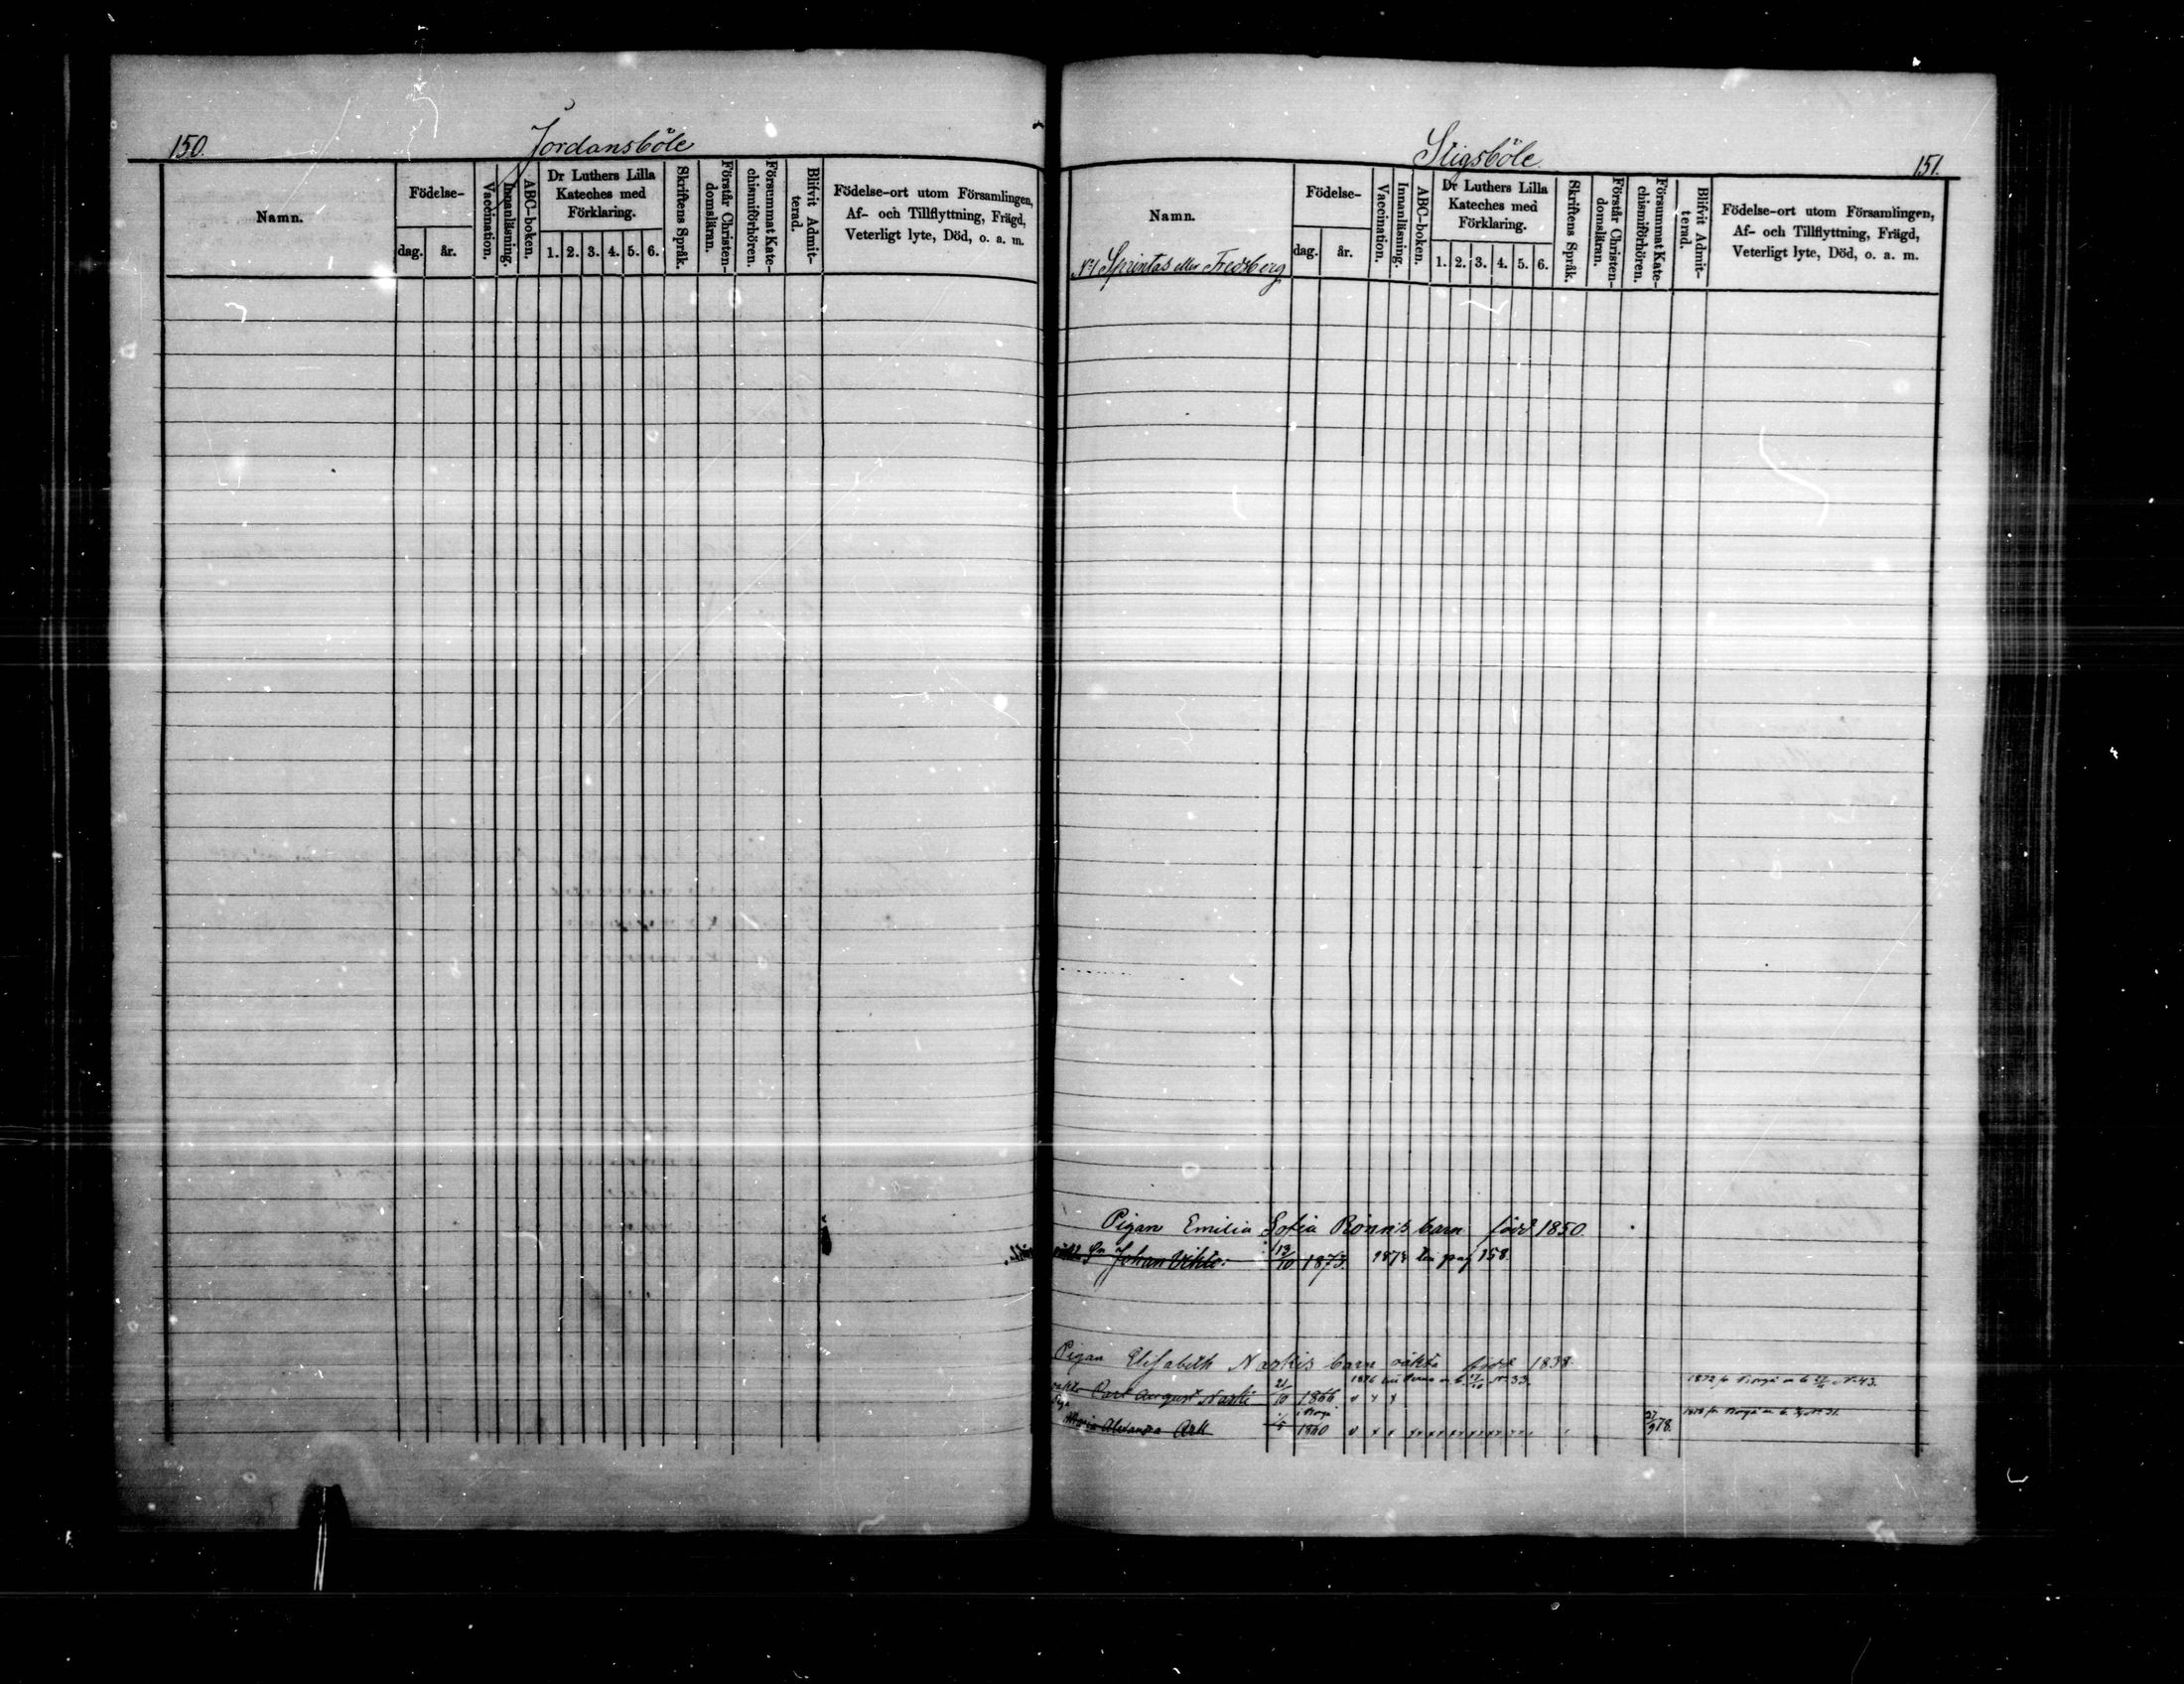 150.
Jordansböle
Namn.
Födelse-
dag.
år.
Vaccination.
Innanläsning.
ABC-boken.
Dr Luthers Lilla
Kateches med
Förklaring.
1. 2. 3. 4. 5. 6.
Skriftens Språk.
Förstår Christen-
domsläran.
Försummat Kate-
chismiförhören.
Blifvit Admit-
terad.
Födelse-ort utom Församlingen,
Af- och Tillflyttning, Frägd,
Veterligt lyte, Död, o. a. m.
Stigsböle
151.
Namn.
Födelse-
dag.
år.
Vaccination.
Innanläsning.
ABC-boken.
Dr Luthers Lilla
Kateches med
Förklaring.
1. 2. 3. 4. 5. 6.
Skriftens Språk.
Förstår Christen-
domsläran.
Försummat Kate-
chismiförhören.
Blifvit Admit-
terad.
Födelse-ort utom Församlingen,
Af- och Tillflyttning, Frägd,
Veterligt lyte, Död, o. a. m.
No 1 Sprintas eller Fredsberg
Pigan Emilia Sofia Rönn's barn född 1850.
Johan Vikto 1873. pag 158.
Pigan Elisabeth Narkis barn oäkta född 1838.
Carl August Narki 21/10 1866
Maria Alexandra Ark 1860 27/9 78.